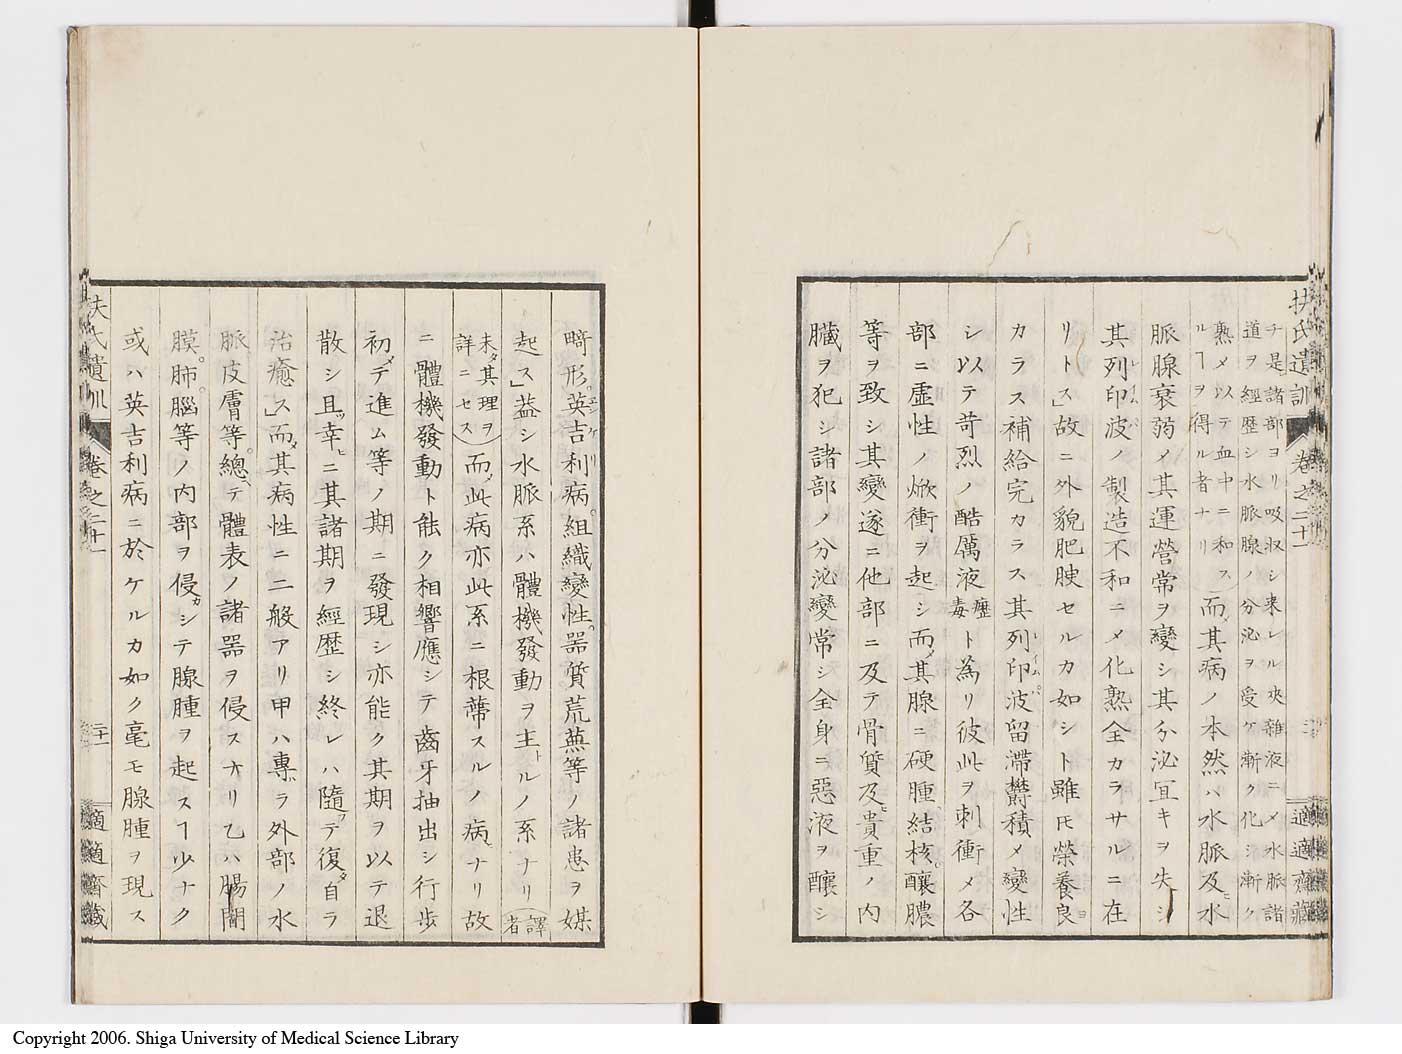 扶氏遺訓 卷之二十一 適適齋藏
チ是諸部ヨリ吸収シ来レル夾雜液ニメ水脈諸
道ヲ經歴シ水脈腺ノ分泌ヲ受ケ漸ク化シ漸ク
熟メ以テ血中ニ和ス
ルヿヲ得ル者ナリ而其病ノ本然ハ水脈及ヒ水
脈腺衰弱メ其運營常ヲ變シ其分泌宜キヲ失シ
其列印波ノ製造不和ニメ化熟全カラサルニ在
リトス」故ニ外貌肥腴セルカ如シト雖モ榮養良
カラス補給完カラス其列印波留滞欝積メ變性
シ以テ苛烈ノ酷厲液瘰毒ト為リ彼此ヲ刺衝メ各
部ニ虚性ノ焮衝ヲ起シ而其腺ニ硬腫結核釀膿
等ヲ致シ其變遂ニ他部ニ及テ骨質及ヒ貴重ノ内
臓ヲ犯シ諸部ノ分泌變常シ全身ニ惡液ヲ釀シ
畸形英吉利病組織變性器質荒蕪等ノ諸患ヲ媒
起ス」葢シ水脈系ハ體機發動ヲ主トルノ系ナリ(譯者
未タ其理ヲ詳ニセス)而此病亦此系ニ根蔕スルノ病ナリ故
ニ體機發動ト能ク相響應シテ齒牙抽出シ行歩
初メテ進ム等ノ期ニ發現シ亦能ク其期ヲ以テ退
散シ且ツ幸ヒニ其諸期ヲ經歴シ終レハ隨テ復タ自ラ
治癒ス」而其病性ニ二般アリ甲ハ專ラ外部ノ水
脈皮膚等總テ體表ノ諸器ヲ侵スナリ乙ハ腸間
膜肺腦等ノ内部ヲ侵カシテ腺腫ヲ起スヿ少ナク
或ハ英吉利病ニ於ケルカ如ク毫モ腺腫ヲ現ス
扶氏遺訓 卷之二十一 二十二 適適齋藏
Copyright 2006. Shiga University of Medical Science Library